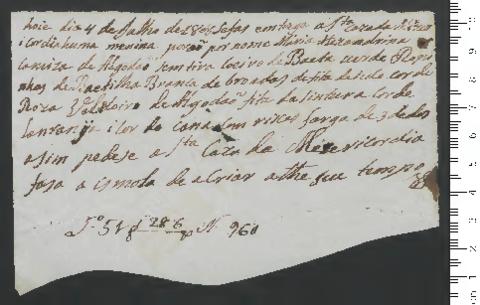 hoje dia 4 de Julho de 1805 Sefas entrega a Stª caza da Mizeri
cordia huma menina por nome Maria Alexandrina
camiza de Algodão sem tira coeiro de Baeta verde Roupi
nhas de Baetilha Branca de fita de sedo cor de
Roza de Algodaõ fita da sintura cor de
laranja i lor do cana com riscos larga de 3 dedos
asim pedese a Sta Caza da Mezericordia
fasa a ismola de a Criar athe seu tempo
Lº 51 f 286 Nº 960